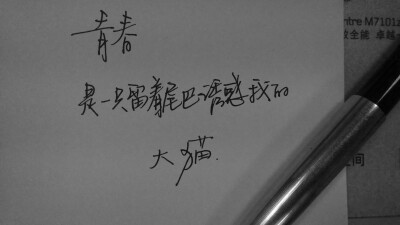 青春
是一只留着尾巴诱惑我的
大猫.
ntre M7101
全能 卓越
间